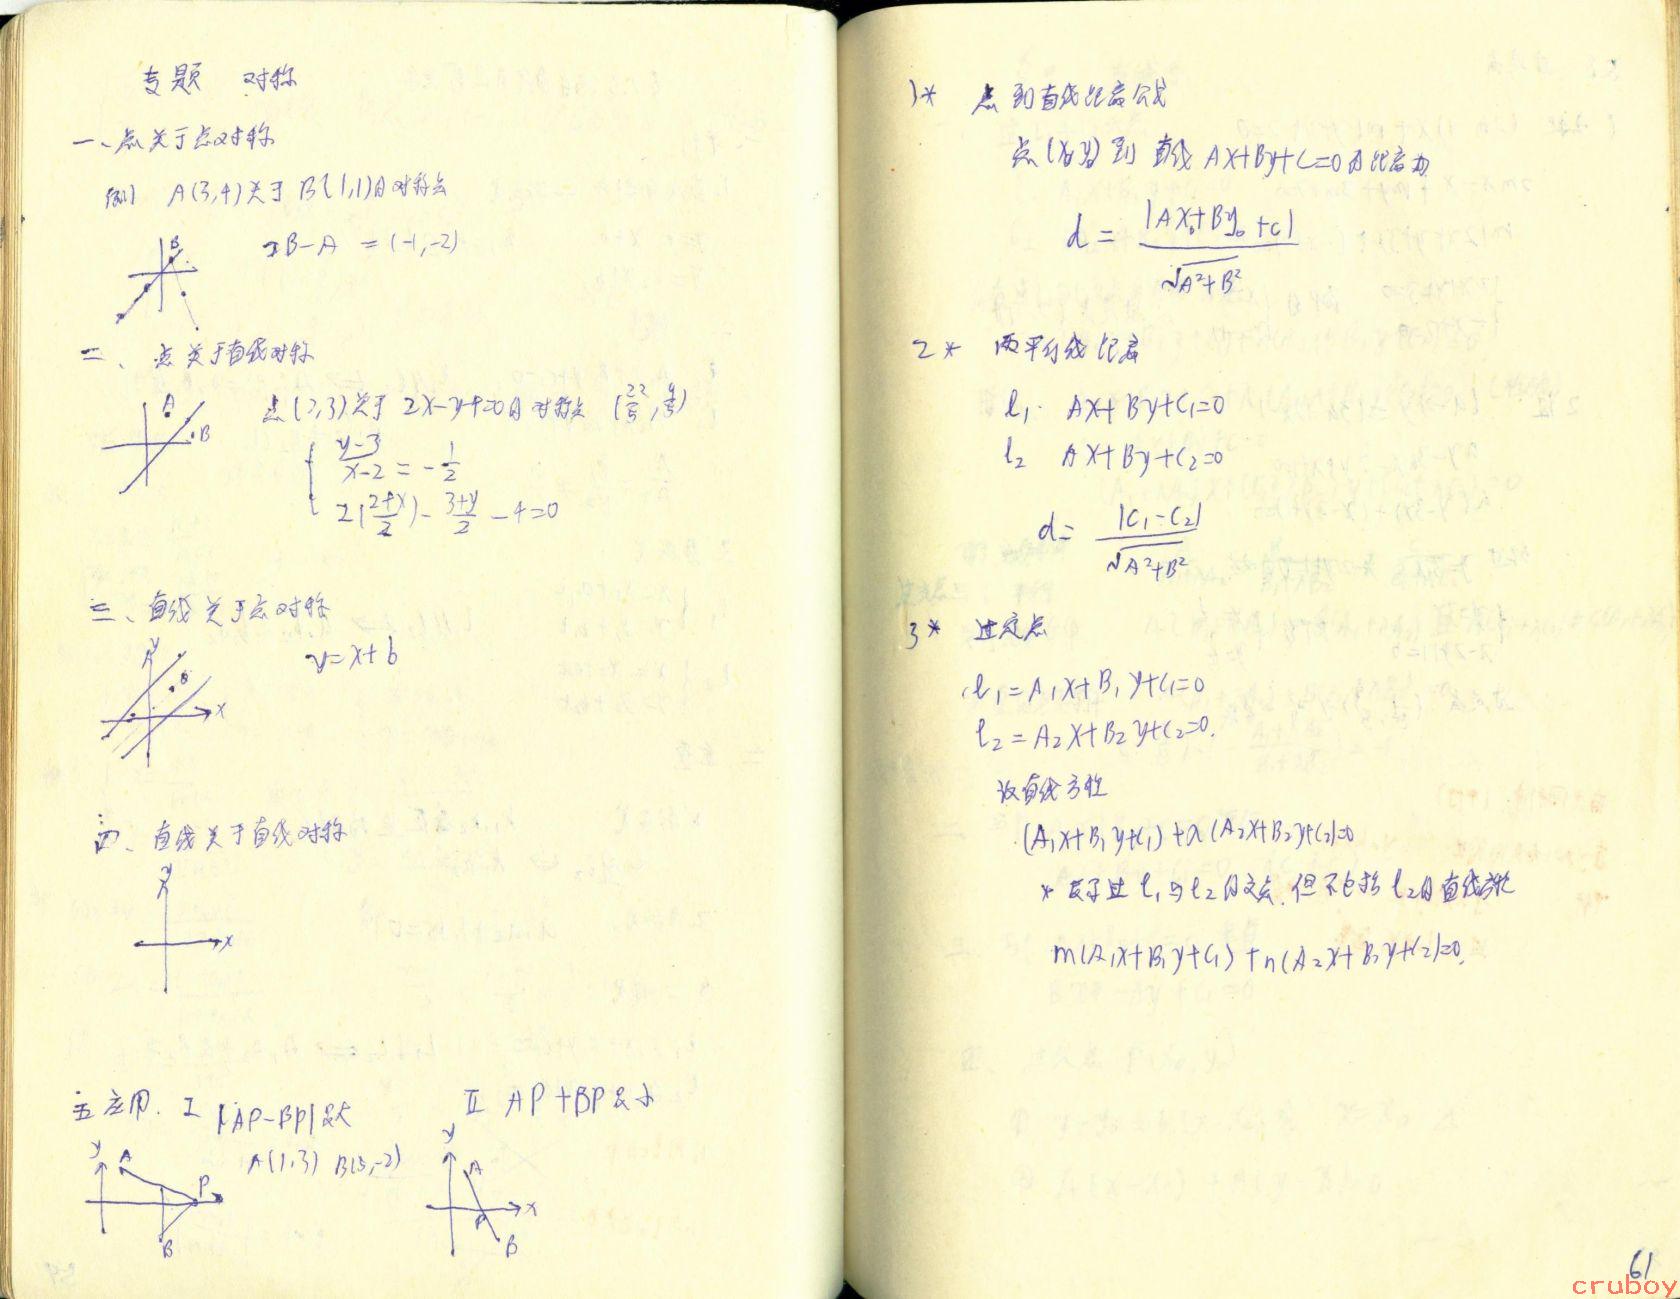 专题 对称
一、点关于点对称
例1 A(3,4)关于B(1,1)的对称点
2B-A =(-1,-2)
B
二、点关于直线对称
点(2,3)关于2x-y-4=0的对称点
A
B
{ (y-3)/(x-2) = -1/2
2((2+x)/2) - (3+y)/2 - 4=0
三、直线关于点对称
y=x+b
y
x
四、直线关于直线对称
y
x
五 应用. I |AP-BP|最大
A(1,3) B(3,-2)
y
A
P
B
II AP+BP最小
y
A
P
x
B
1* 点到直线距离公式
点(x₀,y₀)到直线Ax+By+C=0的距离为
d = |Ax₀+By₀+C| / √(A²+B²)
2* 两平行线距离
l₁: Ax+By+C₁=0
l₂ Ax+By+C₂=0
d= |C₁-C₂| / √(A²+B²)
3* 过定点
l₁=A₁x+B₁y+C₁=0
l₂=A₂x+B₂y+C₂=0.
设直线方程
(A₁x+B₁y+C₁)+λ(A₂x+B₂y+C₂)=0
* 表示过l₁与l₂的交点.但不包括l₂的直线方程
m(A₁x+B₁y+C₁)+n(A₂x+B₂y+C₂)=0.
61
cruboy